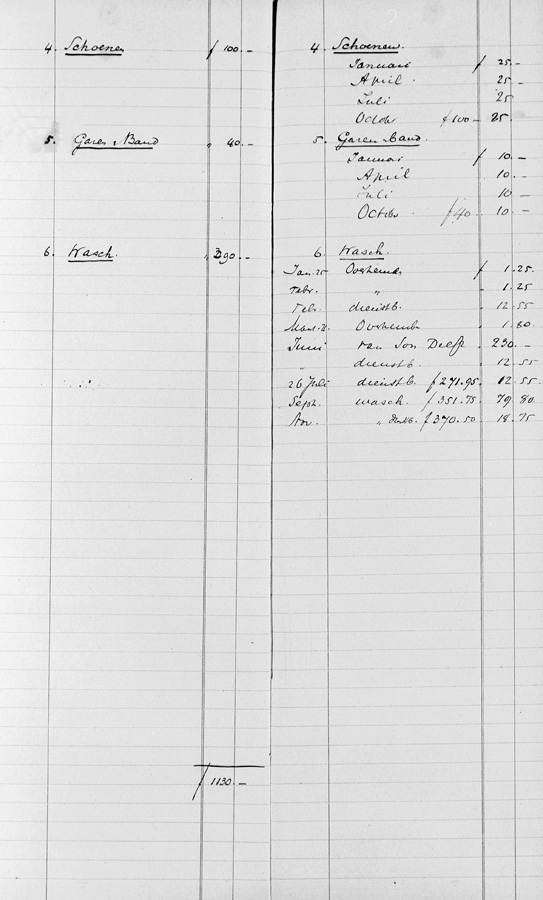 4. Schoenen f 100.-
5. Garen & Band " 40.-
6. Wasch. " 390.-
f 1130.-
4. Schoenen.
Januari f 25.-
April 25.-
Juli 25.-
October f 100.- 25.-
5. Garen & band.
Januari f 10.-
April 10.-
Juli 10.-
Octbr. f 40.- 10.-
6. Wasch.
Jan. 25 Overhemd f 1.25.
Febr. " 1.25
Febr. dienstb. 12.55
Overhemd 1.80.
Juni van Son Delft 230.-
" dienstb. 12.55
26 Juli dienstb. f 271.95. 12.55.
Sept. wasch. f 351.75. 79.80.
Nov. " f 370.50. 18.75